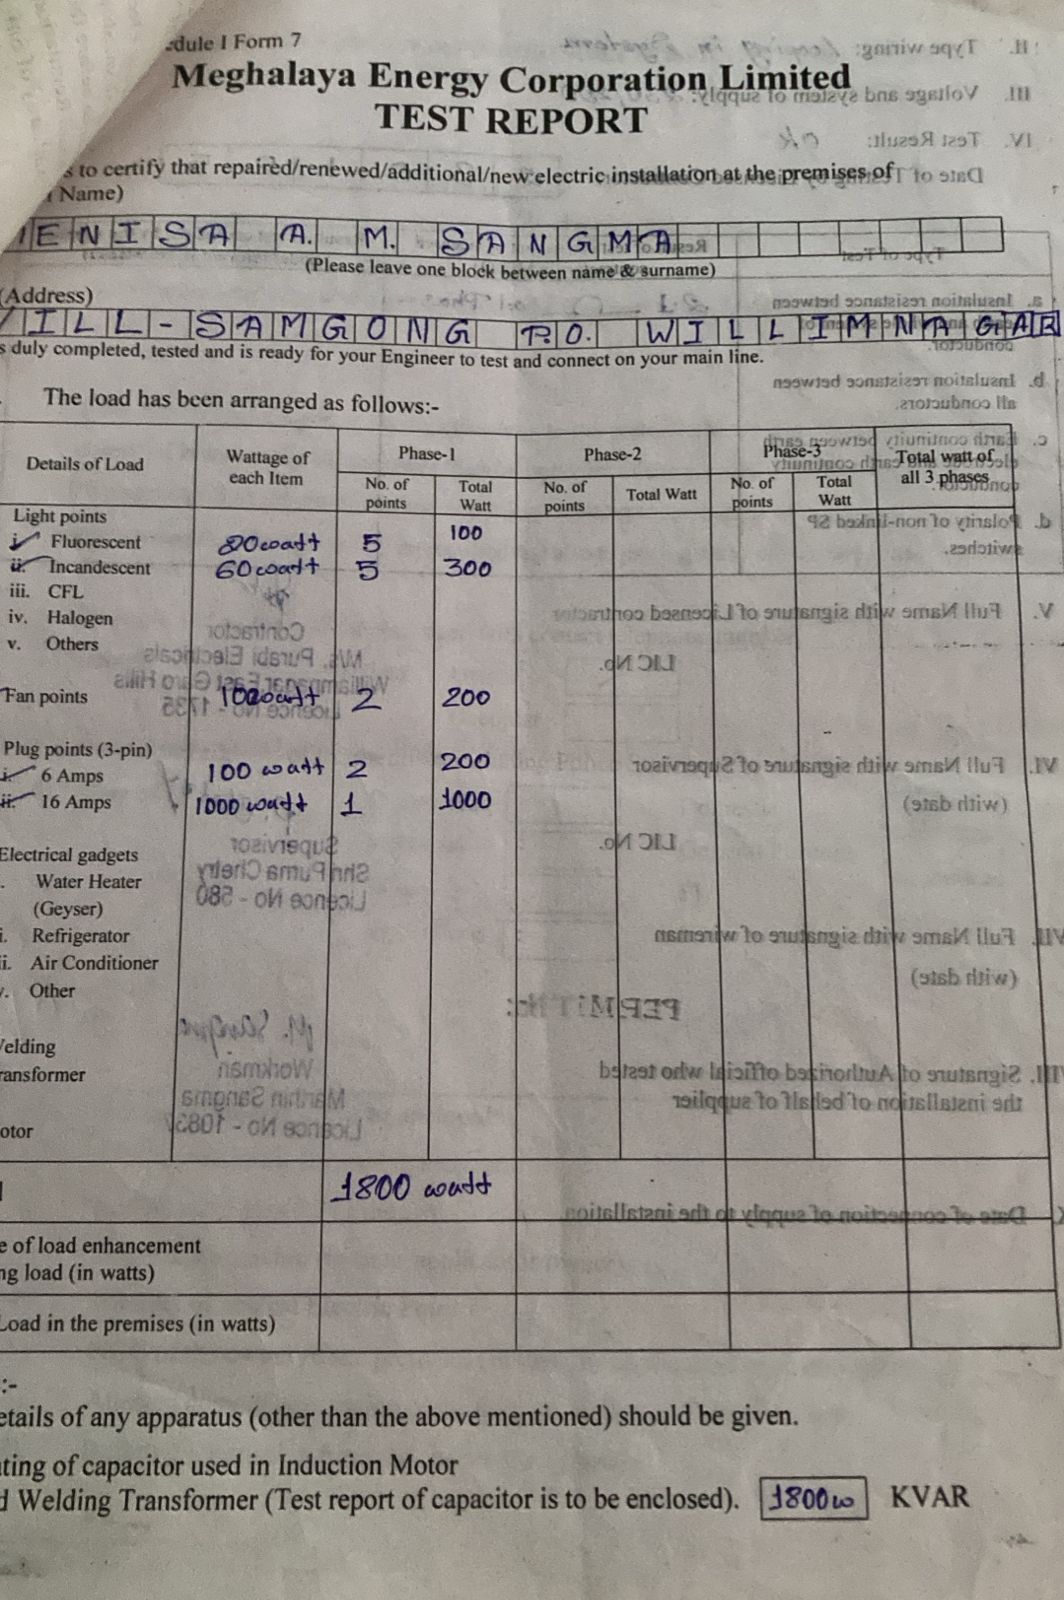 edule I Form 7
Meghalaya Energy Corporation Limited
TEST REPORT
s to certify that repaired/renewed/additional/new electric installation at the premises of
Name)
ENISA A. M. SANGMA
(Please leave one block between name & surname)
(Address)
VILL-SAMGONG P.O. WILLIMNAGAR
s duly completed, tested and is ready for your Engineer to test and connect on your main line.
The load has been arranged as follows:-
Details of Load Wattage of each Item Phase-1 Phase-2 Phase-3 Total watt of all 3 phases
No. of points Total Watt No. of points Total Watt No. of points Total Watt
Light points
i. Fluorescent 20watt 5 100
ii. Incandescent 60watt 5 300
iii. CFL
iv. Halogen
v. Others
Fan points 100watt 2 200
Plug points (3-pin)
i. 6 Amps 100 watt 2 200
ii. 16 Amps 1000 watt 1 1000
Electrical gadgets
. Water Heater
(Geyser)
i. Refrigerator
ii. Air Conditioner
v. Other
elding
ransformer
otor
1800 watt
e of load enhancement
ng load (in watts)
Load in the premises (in watts)
:-
etails of any apparatus (other than the above mentioned) should be given.
ting of capacitor used in Induction Motor
d Welding Transformer (Test report of capacitor is to be enclosed). 1800w KVAR